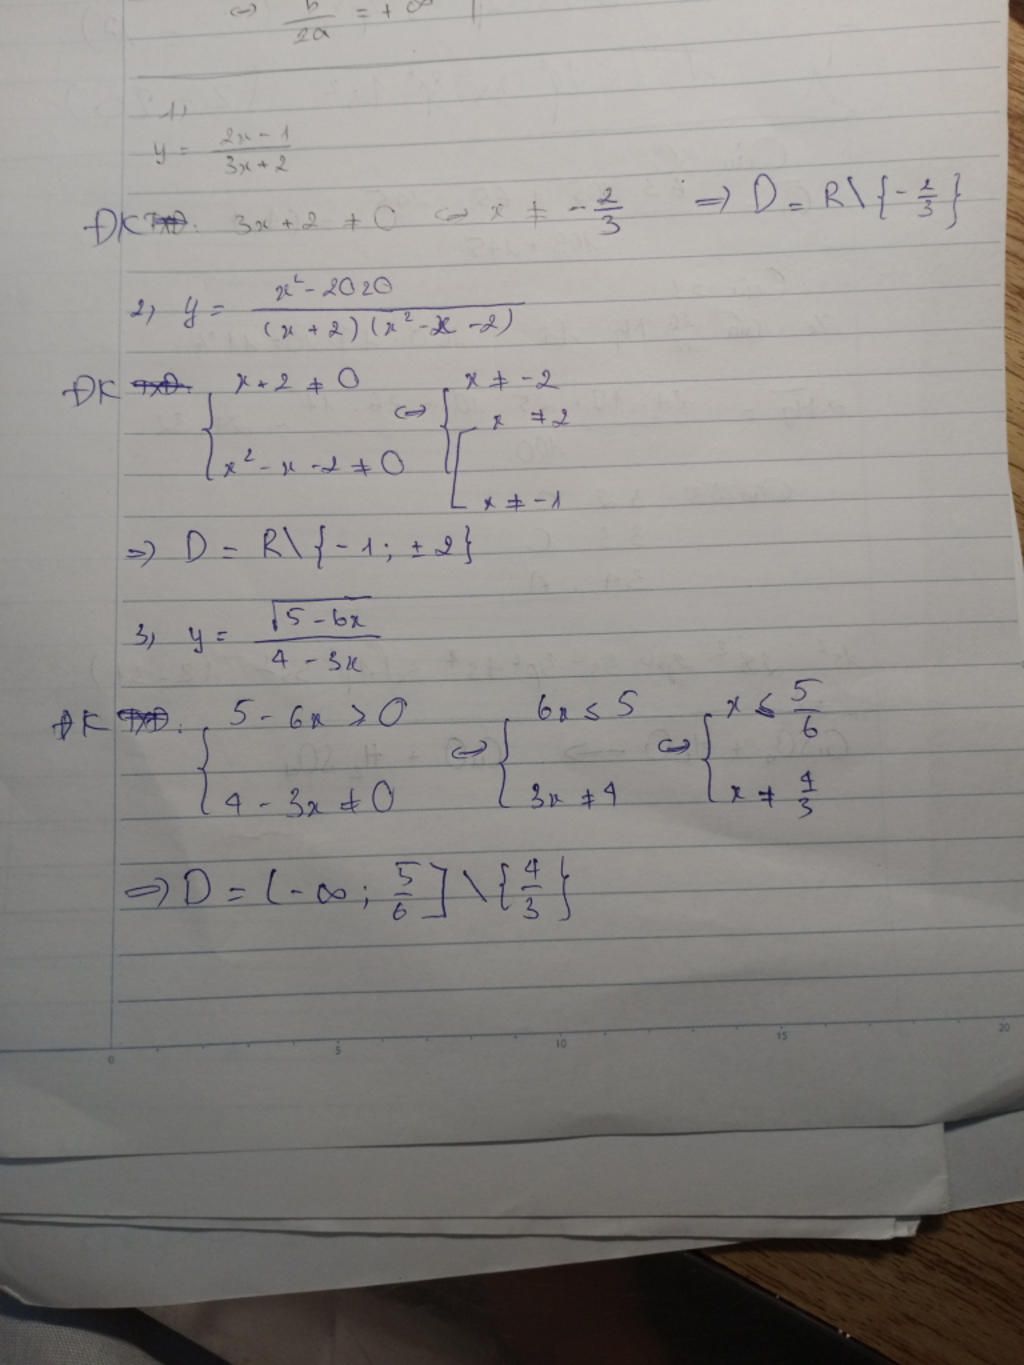 ⇔ b/2a = + ∞
1)
y = (2x - 1)/(3x + 2)
ĐK TXĐ: 3x + 2 ≠ 0 ⇔ x ≠ - 2/3 ⇒ D = R\{- 2/3}
2) y = (x² - 2020)/((x + 2)(x² - x - 2))
ĐK TXĐ: { x + 2 ≠ 0 ⇔ { x ≠ -2
x ≠ 2
x² - x - 2 ≠ 0
x ≠ -1
⇒ D = R\{-1; ±2}
3) y = √(5 - 6x)/(4 - 3x)
ĐK TXĐ: { 5 - 6x ≥ 0 ⇔ { 6x ≤ 5 ⇔ { x ≤ 5/6
4 - 3x ≠ 0 3x ≠ 4 x ≠ 4/3
⇒ D = (-∞; 5/6] \ {4/3}
0 5 10 15 20